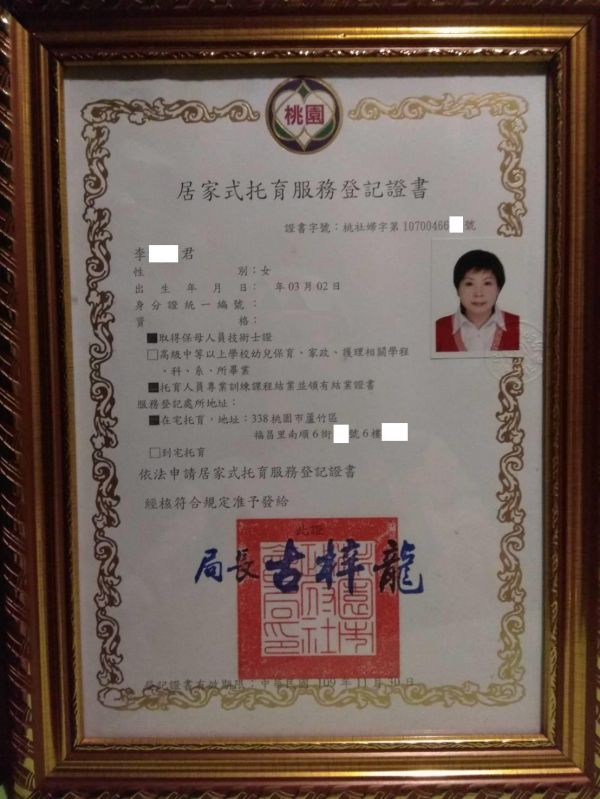 桃園
居家式托育服務登記證書
證書字號：桃社婦字第10700466 號
李 君
性別：女
出生年月日： 年03月02日
身分證統一編號：
資格：
■取得保母人員技術士證
□高級中等以上學校幼兒保育、家政、護理相關學程
、科、系、所畢業
■托育人員專業訓練課程結業並領有結業證書
服務登記處所地址：
■在宅托育，地址：338桃園市蘆竹區
福昌里南順6街 號6樓
□到宅托育
依法申請居家式托育服務登記證書
經核符合規定准予發給
此證
局長 古梓龍
登記證書有效期限：中華民國109年11月 日